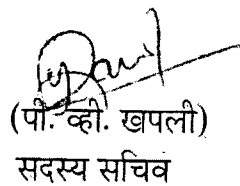 (पी. व्ही. खपली)
सदस्य सचिव